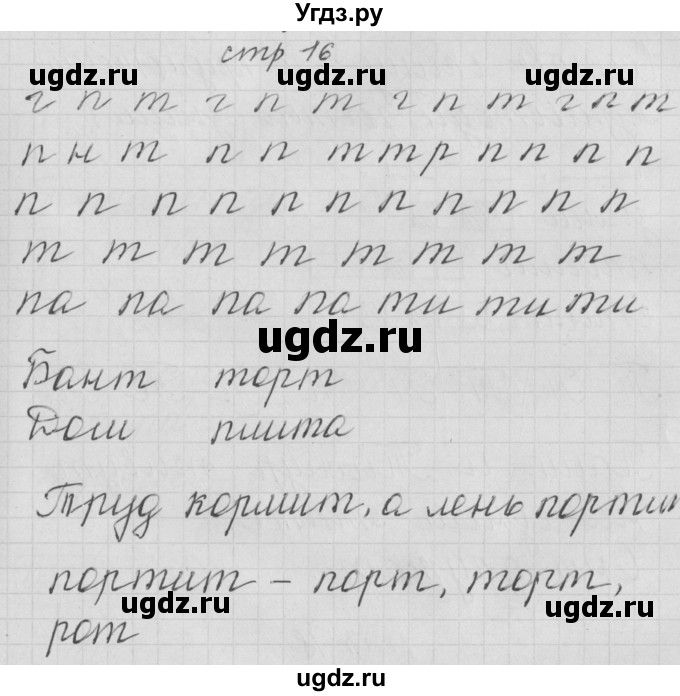 Угдз.ру
стр 16
ugdz.ru ugdz.ru ugdz.ru
г п т г п т г п т г п т
п н т п п т т р п п п п
п п п п п п п п п п п
т т т т т т т т
па па па па ти ти ти
ugdz.ru
Бант торт
Дом
ugdz.ru
Труд кормит, а лень портит
портит – порт, торт,
ugdz.ru ugdz.ru
рот
ugdz.ru ugdz.ru